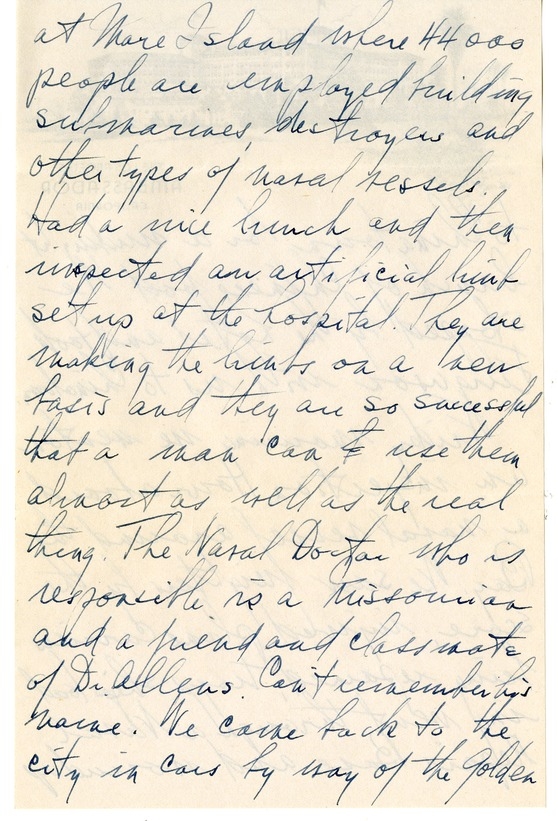 at Mare Island where 44000
people are employed building
submarines, destroyers and
other types of naval vessels.
Had a nice lunch and then
inspected an artificial limb
set up at the hospital. They are
making the limbs on a new
basis and they are so successful
that a man can use them
almost as well as the real
thing. The Naval Doctor who is
responsible is a Missourian
and a friend and classmate
of Dr. Allens. Can't remember his
name. We came back to the
city in cars by way of the Golden